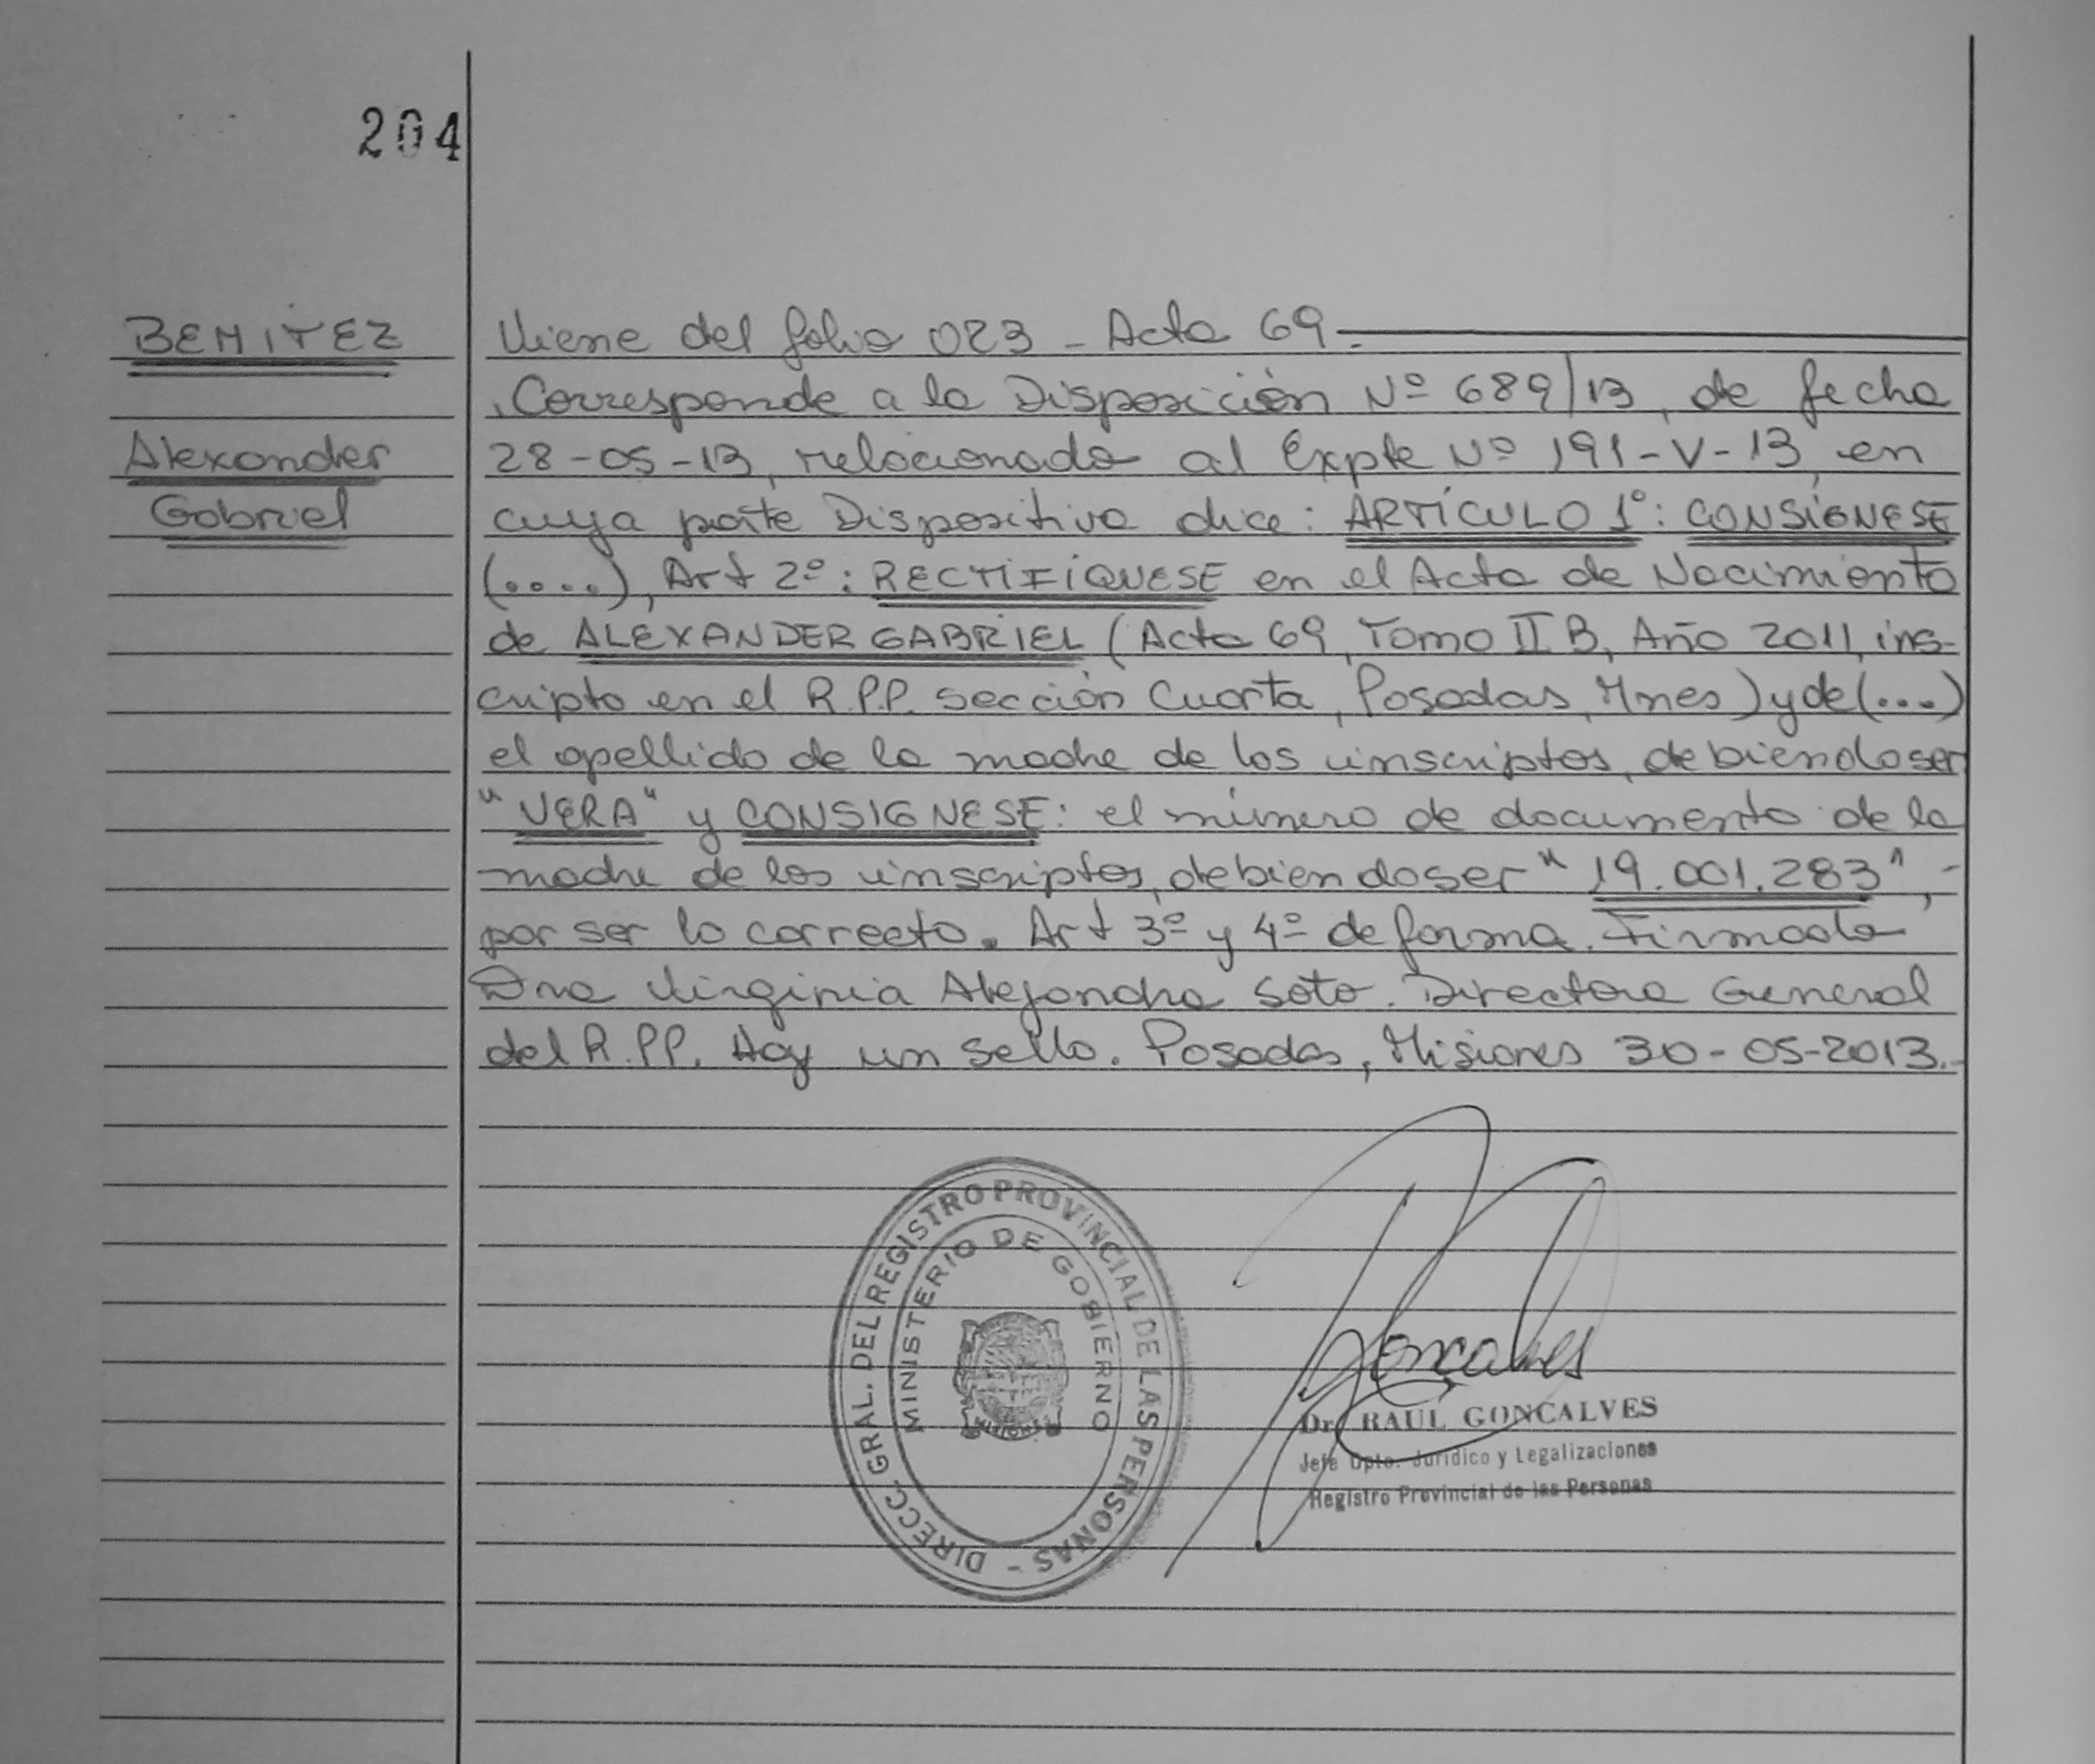 204
BENITEZ
Alexander
Gabriel
Viene del folio 023 - Acta 69.
Corresponde a la Disposición Nº 689/13, de fecha
28-05-13, relacionada al Expte Nº 191-V-13, en
cuya parte Dispositiva dice: ARTÍCULO 1º: CONSÍGNESE
(....), Art 2º: RECTIFÍQUESE en el Acta de Nacimiento
de ALEXANDER GABRIEL (Acta 69, Tomo II B, Año 2011, ins-
cripto en el R.P.P. Sección Cuarta, Posadas, Mnes) y de (...)
el apellido de la madre de los inscriptos, debiendo ser
"VERA" y CONSIGNESE: el número de documento de la
madre de los inscriptos, debiendo ser "19.001.283",-
por ser lo correcto. Art 3º y 4º de forma. Firmado
Dra Virginia Alejandra Soto. Directora General
del R.P.P. Hay un sello. Posadas, Misiones 30-05-2013.-
DIRECC. GRAL. DEL REGISTRO PROVINCIAL DE LAS PERSONAS -
MINISTERIO DE GOBIERNO
Goncalves
Dr. RAUL GONCALVES
Jefe Dpto. Jurídico y Legalizaciones
Registro Provincial de las Personas